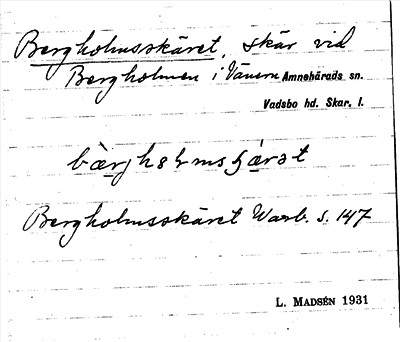 Bergholmsskäret, skär vid
Bergholmen i Vänern Amnehärads sn.
Vadsbo hd. Skar. l.
Bergholmsskäret Warb. s. 147
L. MADSÉN 1931